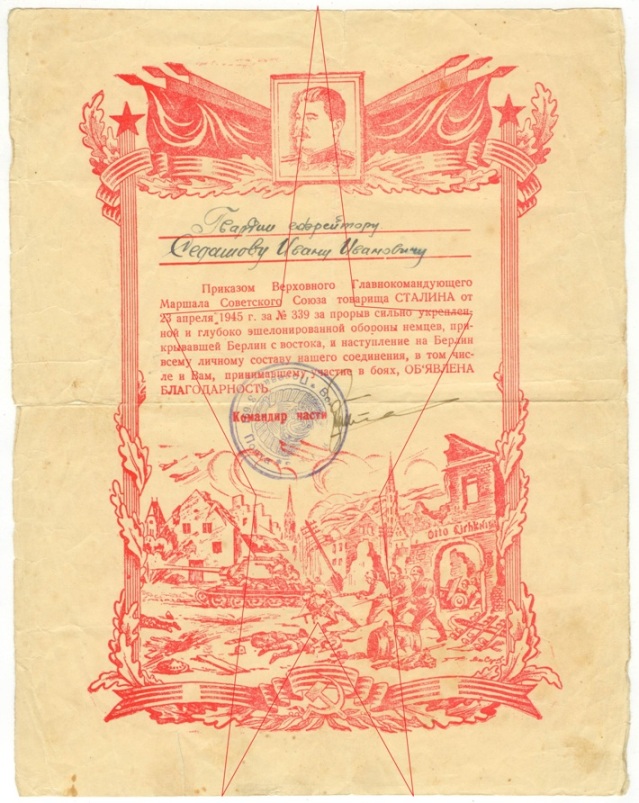 Гвардии ефрейтору
Седашову Ивану Ивановичу
Приказом Верховного Главнокомандующего
Маршала Советского Союза товарища СТАЛИНА от
23 апреля 1945 г. за № 339 за прорыв сильно укреплен-
ной и глубоко эшелонированной обороны немцев, при-
крывавшей Берлин с востока, и наступление на Берлин
всему личному составу нашего соединения, в том чис-
ле и Вам, принимавшему участие в боях, ОБ'ЯВЛЕНА
БЛАГОДАРНОСТЬ
Командир части
Otto